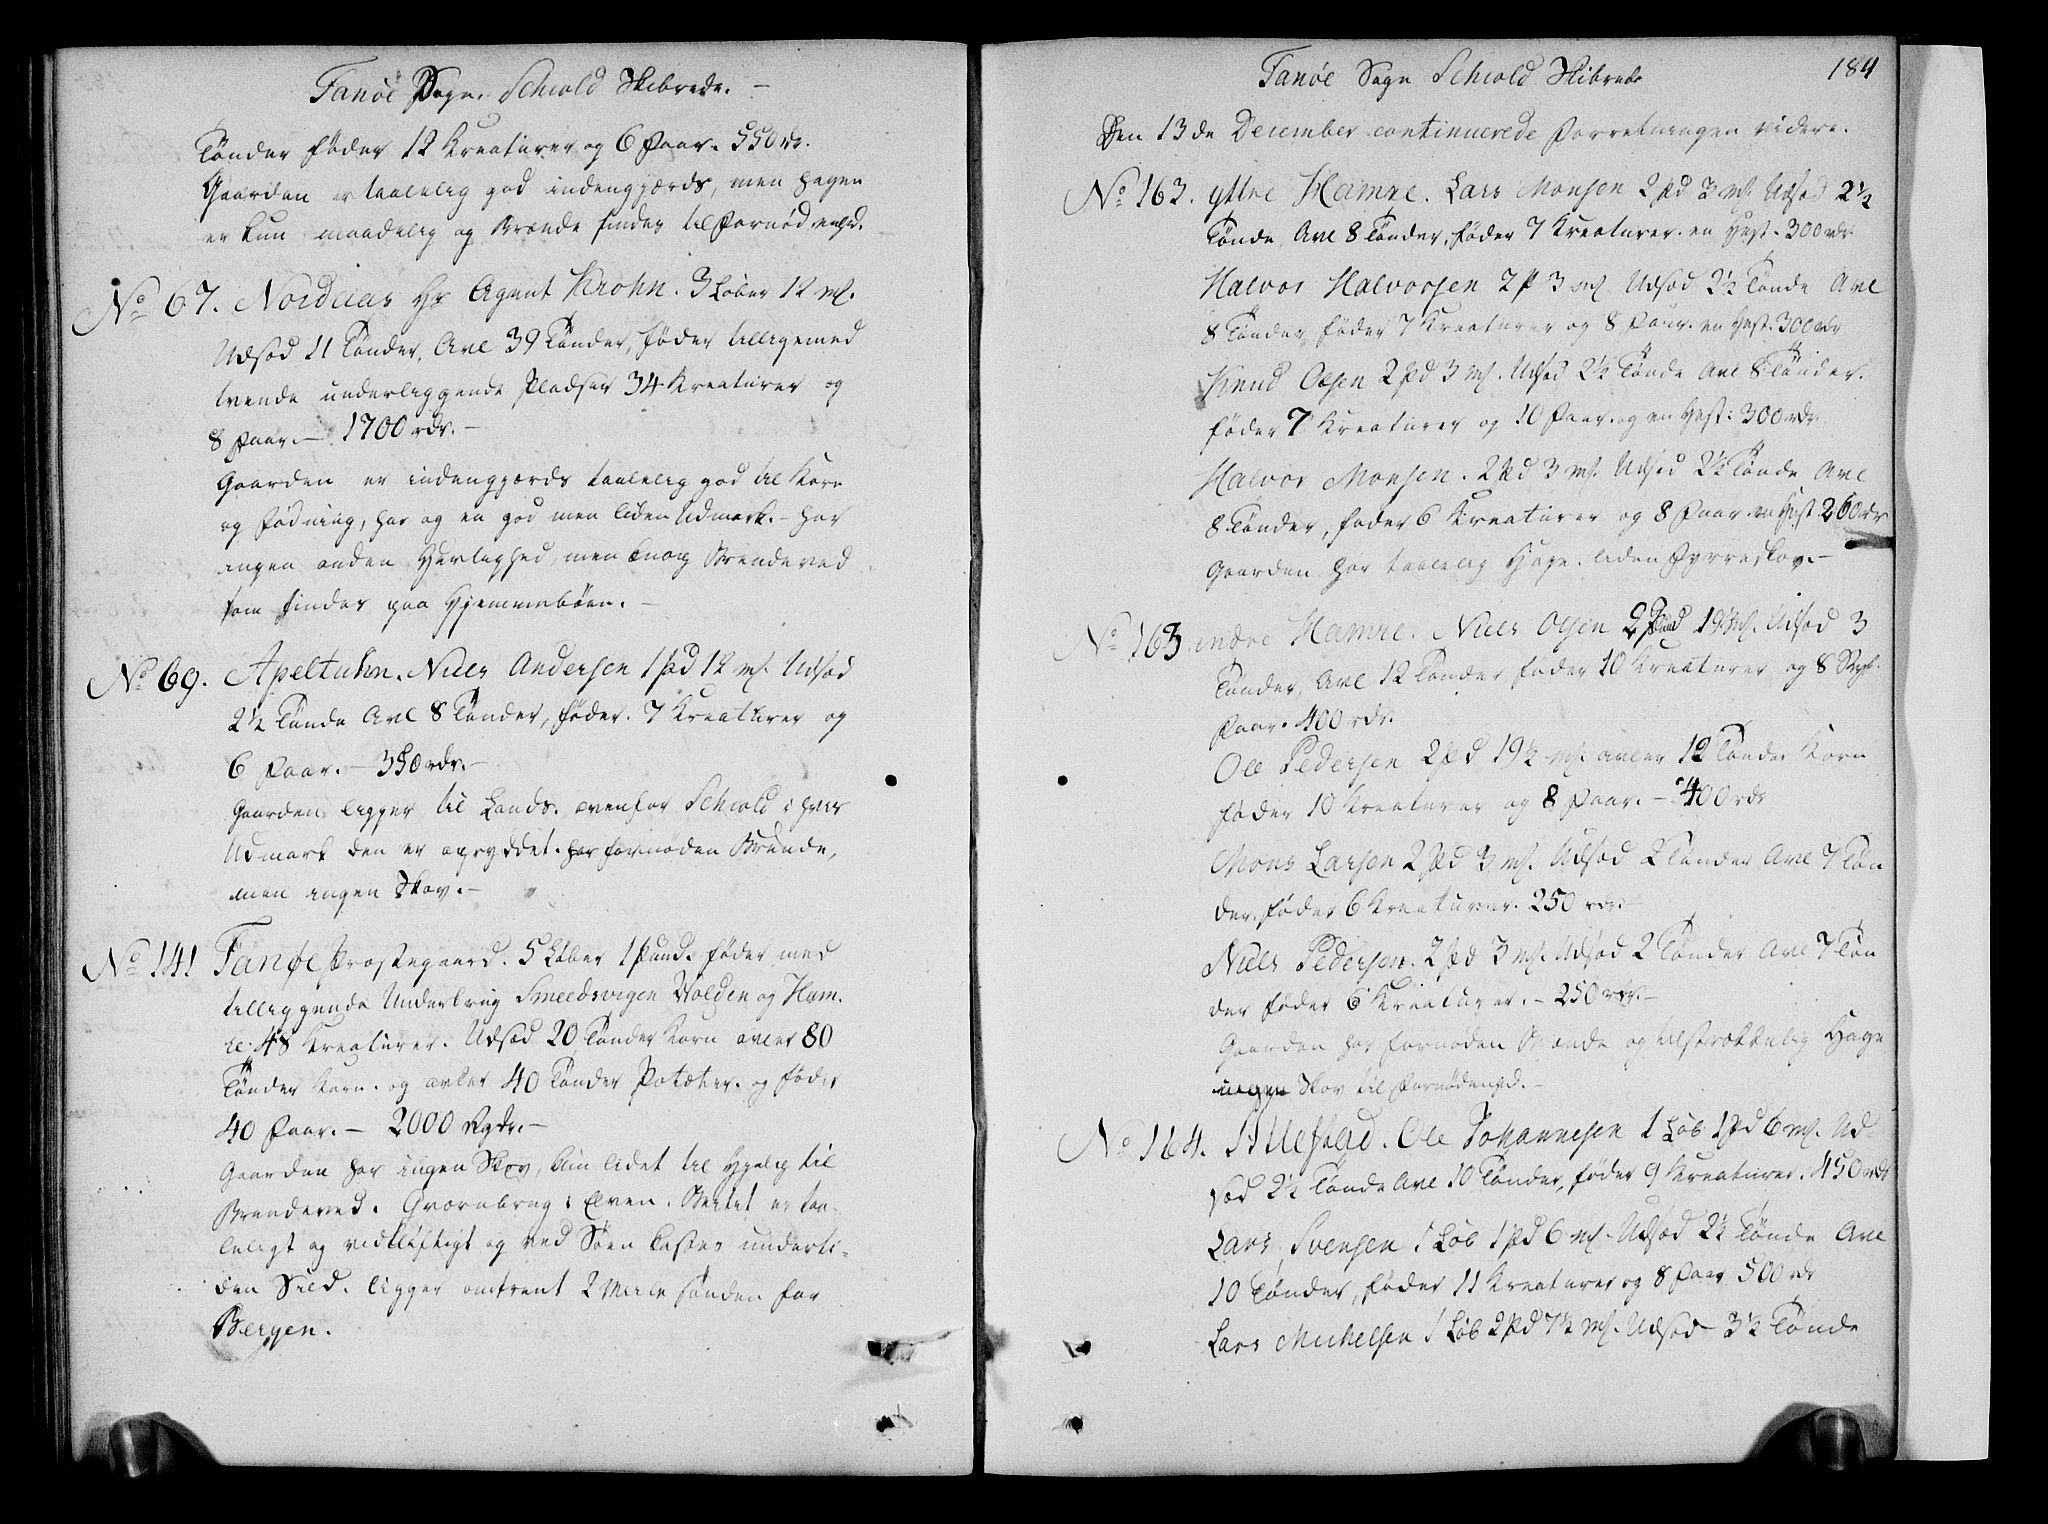 Fanöe Sogn. Schiold Skibrede. –
Tönder föder 12 Kreaturer og 6 Faar. 550 rdr.
Gaarden er taalelig god indengjærds, men hagen
er kun maadelig og Brænde findes til Fornødenhed.
No 67. Nordaas Hr Agent Krohn. 3 Löber 12 mk.
Udsæd 11 Tönder, Avl 39 Tönder, föder tilligemed
tvende underliggende Pladser 34 Kreaturer og
8 Faar. – 1700 rdr. –
Gaarden er indengjærds taalelig god til Korn
og Födning, har og en god men liden Udmark. – har
ingen anden Herlighed, men knap Brendeved
som findes paa Hjemmeböen. –
No 69. Apeltuhn. Niels Andersen 1 pd 12 mk. Udsæd
2½ Tönde Avl 8 Tönder, föder. 7 Kreaturer og
6 Faar. – 350 rdr. –
Gaarden ligger til Lands. ovenfor Schiold i hvis
Udmark den er opryddet. har fornöden Brende,
men ingen Skov. –
No 141 Fanöe Præstegaard. 5 Löber 1 Pund. föder med
tilliggende Underbrug Smeedsvigen Volden og Ham-
le. 48 Kreaturer. Udsæd 20 Tönder Korn avler 80
Tönder Korn. og avler 40 Tönder Potæter. og föder
40 Faar. – 2000 Rgdr. –
Gaarden har ingen Skov, kun lidet til
Brendeved. Qværnbrug i Elven. Beitet er taa-
leligt og vidtlöftigt og ved Söen kastes underti-
den Sild. ligger omtrent 2 Meile sönden for
Bergen.
Fanöe Sogn Schiold Skibrede 184
Den 13de December continuerede Forretningen videre.
No 163. yttre Hamre. Lars Monsen 2 pd 3 mk. Udsæd 2½
Tönde Avl 8 Tönder, föder 7 Kreaturer. en Hest. 300 rdr
Halvor Halvorsen 2 p 3 mk Udsæd 2½ Tönde Avl
8 Tönder föder 7 Kreaturer og 8 Faar. en Hest. 300 rdr
Knud Olsen 2 pd 3 mk. Udsæd 2½ Tönde Avl 8 Tönder.
föder 7 Kreaturer og 10 Faar. og en Hest: 300 rdr.
Halvor Monsen. 2 pd 3 mk. Udsæd 2½ Tönde Avl
8 Tönder, föder 6 Kreaturer og 8 Faar en Hest 260 rdr
Gaarden har taalelig Hage. liden Fyrreskov. –
No 163 indre Hamre. Niels Olsen 2 Pund 19½ mk. Udsæd 3
Tönder, Avl 12 Tönder föder 10 Kreaturer og 8
Faar. 400 rdr.
Ole Pedersen 2 pd 19½ mk. avler 12 Tönder Korn
föder 10 Kreaturer og 8 Faar. – 400 rdr
Mons Larsen 2 pd 3 mk. Udsæd 2 Tönder Avl 7 Tön
der. föder 6 Kreaturer. 250 rdr. –
Niels Pedersen. 2 pd 3 mk. Udsæd 2 Tönder Avl 7 Tön
der föder 6 Kreaturer. – 250 rdr. –
Gaarden har fornöden Brænde og tilstrækkelig Hage
ingen Skov til Fornödenhed. –
No 164. Ole Johannesen 1 Löb 1 pd 6 mk. Ud-
sæd 2½ Tönde Avl 10 Tönder, föder 9 Kreaturer. 450 rdr
Lars Svensen 1 Löb 1 pd 6 mk. Udsæd 2½ Tönde Avl
10 Tönder, föder 11 Kreaturer og 8 Faar 500 rdr
Lars Michelsen 1 Löb 2 pd 7½ mk. Udsæd 3½ Tönde